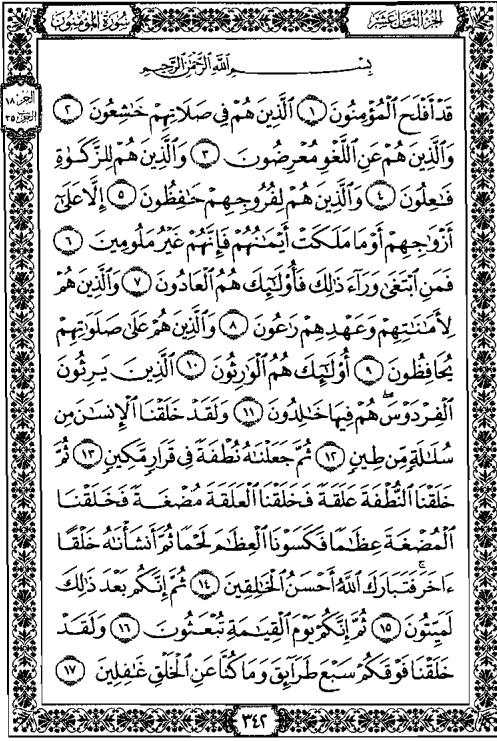 الجزء الثامن عشر
سورة المؤمنون
الجزء ١٨
بِسْمِ اللَّهِ الرَّحْمَٰنِ الرَّحِيمِ
قَدْ أَفْلَحَ الْمُؤْمِنُونَ ١ الَّذِينَ هُمْ فِي صَلَاتِهِمْ خَاشِعُونَ ٢
وَالَّذِينَ هُمْ عَنِ اللَّغْوِ مُعْرِضُونَ ٣ وَالَّذِينَ هُمْ لِلزَّكَوٰةِ
فَاعِلُونَ ٤ وَالَّذِينَ هُمْ لِفُرُوجِهِمْ حَافِظُونَ ٥ إِلَّا عَلَىٰ
أَزْوَاجِهِمْ أَوْ مَا مَلَكَتْ أَيْمَٰنُهُمْ فَإِنَّهُمْ غَيْرُ مَلُومِينَ ٦
فَمَنِ ابْتَغَىٰ وَرَآءَ ذَٰلِكَ فَأُولَٰٓئِكَ هُمُ الْعَادُونَ ٧ وَالَّذِينَ هُمْ
لِأَمَٰنَٰتِهِمْ وَعَهْدِهِمْ رَٰعُونَ ٨ وَالَّذِينَ هُمْ عَلَىٰ صَلَوَٰتِهِمْ
يُحَافِظُونَ ٩ أُولَٰٓئِكَ هُمُ الْوَارِثُونَ ١٠ الَّذِينَ يَرِثُونَ
الْفِرْدَوْسَ هُمْ فِيهَا خَالِدُونَ ١١ وَلَقَدْ خَلَقْنَا الْإِنسَٰنَ مِن
سُلَٰلَةٍ مِّن طِينٍ ١٢ ثُمَّ جَعَلْنَٰهُ نُطْفَةً فِي قَرَارٍ مَّكِينٍ ١٣ ثُمَّ
خَلَقْنَا النُّطْفَةَ عَلَقَةً فَخَلَقْنَا الْعَلَقَةَ مُضْغَةً فَخَلَقْنَا
الْمُضْغَةَ عِظَٰمًا فَكَسَوْنَا الْعِظَٰمَ لَحْمًا ثُمَّ أَنشَأْنَٰهُ خَلْقًا
ءَاخَرَ ۚ فَتَبَارَكَ اللَّهُ أَحْسَنُ الْخَٰلِقِينَ ١٤ ثُمَّ إِنَّكُم بَعْدَ ذَٰلِكَ
لَمَيِّتُونَ ١٥ ثُمَّ إِنَّكُمْ يَوْمَ الْقِيَٰمَةِ تُبْعَثُونَ ١٦ وَلَقَدْ
خَلَقْنَا فَوْقَكُمْ سَبْعَ طَرَآئِقَ وَمَا كُنَّا عَنِ الْخَلْقِ غَٰفِلِينَ ١٧
٣٤٢